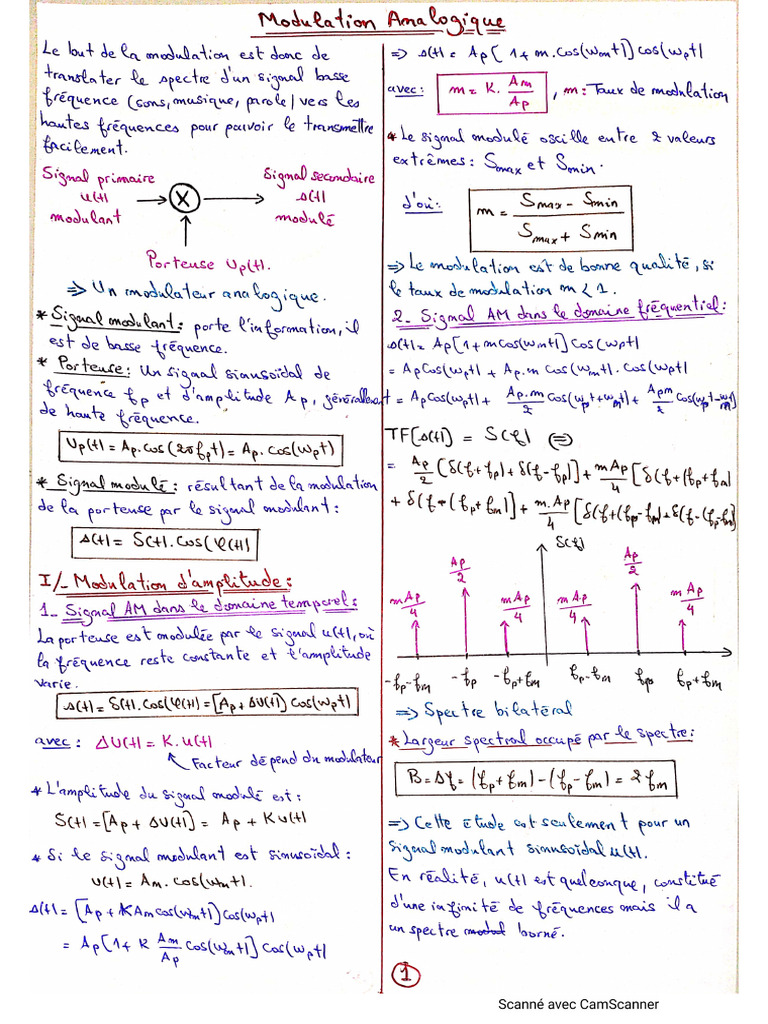 Modulation Analogique
Le but de la modulation est donc de
translater le spectre d'un signal basse
fréquence (sons, musique, parole) vers les
hautes fréquences pour pouvoir le transmettre
facilement.
Signal primaire
u(t)
modulant
X
Signal secondaire
s(t)
modulé
Porteuse Up(t).
=> Un modulateur analogique.
* Signal modulant: porte l'information, il
est de basse fréquence.
* Porteuse: Un signal sinusoïdal de
fréquence fp et d'amplitude Ap, générallement
de haute fréquence.
Up(t) = Ap.cos(2πfpt) = Ap.cos(wpt)
* Signal modulé: résultant de la modulation
de la porteuse par le signal modulant:
s(t) = S(t).cos(φ(t))
I/- Modulation d'amplitude:
1- Signal AM dans le domaine temporel:
La porteuse est modulée par le signal u(t), où
la fréquence reste constante et l'amplitude
varie.
s(t) = S(t).cos(φ(t)) = [Ap + ΔU(t)] cos(wpt)
avec: ΔU(t) = K.u(t)
Facteur dépend du modulateur
* L'amplitude du signal modulé est:
S(t) = [Ap + ΔU(t)] = Ap + KU(t)
* Si le signal modulant est sinusoïdal:
U(t) = Am.cos(wmt).
s(t) = [Ap + KAm cos(wmt)] cos(wpt)
= Ap[1 + K Am/Ap cos(wmt)] cos(wpt)
=> s(t) = Ap[1 + m.cos(wmt)] cos(wpt)
avec: m = K. Am/Ap , m: Taux de modulation
* Le signal modulé oscille entre 2 valeurs
extrêmes: Smax et Smin.
d'où: m = Smax - Smin / Smax + Smin
=> Le modulation est de bonne qualité, si
le taux de modulation m < 1.
2- Signal AM dans le domaine fréquentiel:
s(t) = Ap[1 + m cos(wmt)] cos(wpt)
= Ap cos(wpt) + Ap.m cos(wmt).cos(wpt)
= Ap cos(wpt) + Ap.m/2 cos(wpt + wmt) + Apm/2 cos(wpt - wmt)
TF[s(t)] = S(f) <=>
= Ap/2 [δ(f+fp) + δ(f-fp)] + mAp/4 [δ(f+(fp+fm)
+ δ(f-(fp+fm)] + m.Ap/4 [δ(f+(fp-fm) + δ(f-(fp-fm)]
S(f)
mAp/4 Ap/2 mAp/4 mAp/4 Ap/2 mAp/4
-fp-fm -fp -fp+fm fp-fm fp fp+fm
=> Spectre bilatéral
* Largeur spectral occupé par le spectre:
B = Δf = (fp+fm) - (fp-fm) = 2fm
=> Cette étude est seulement pour un
signal modulant sinusoïdal u(t).
En réalité, u(t) est quelconque, constitué
d'une infinité de fréquences mais il a
un spectre borné.
1
Scanné avec CamScanner